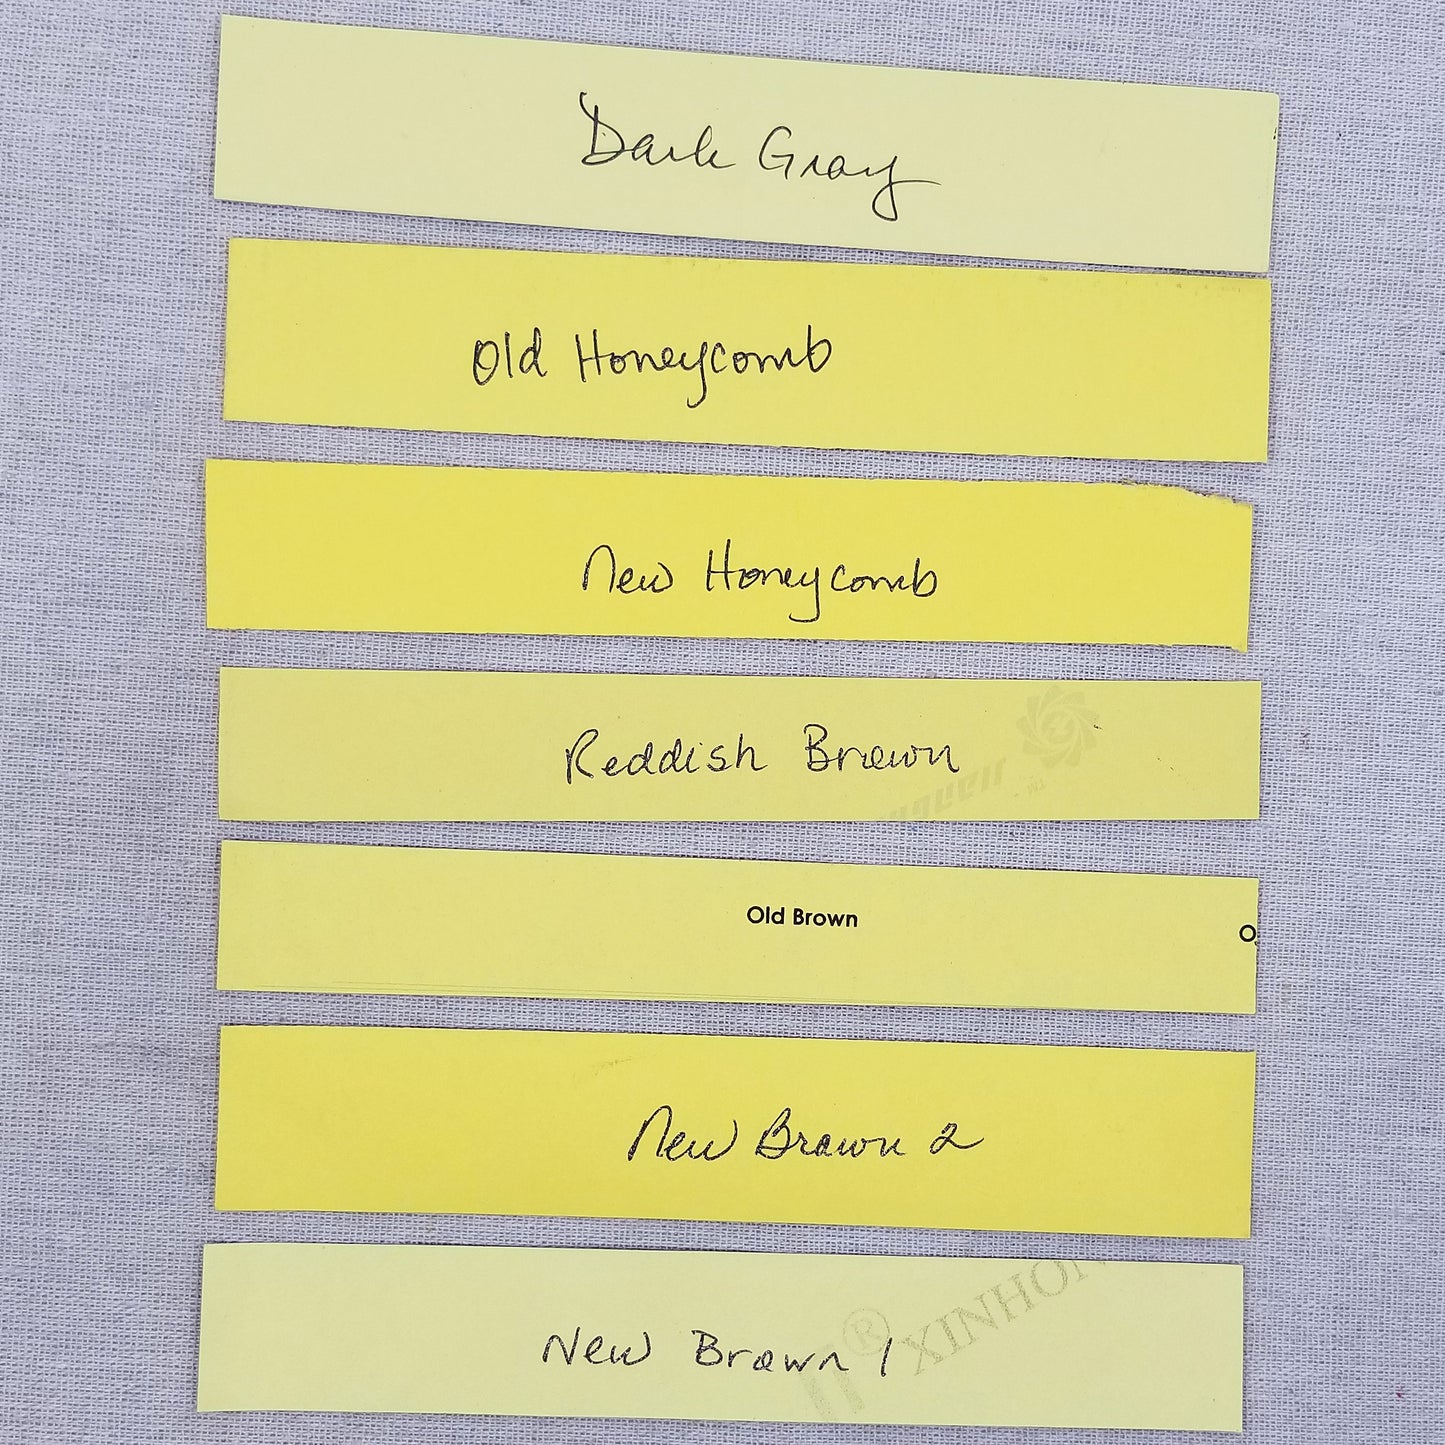 Dark Gray
Old Honeycomb
New Honeycomb
Reddish Brown
Old Brown
O
New Brown 2
New Brown 1
® XINHON